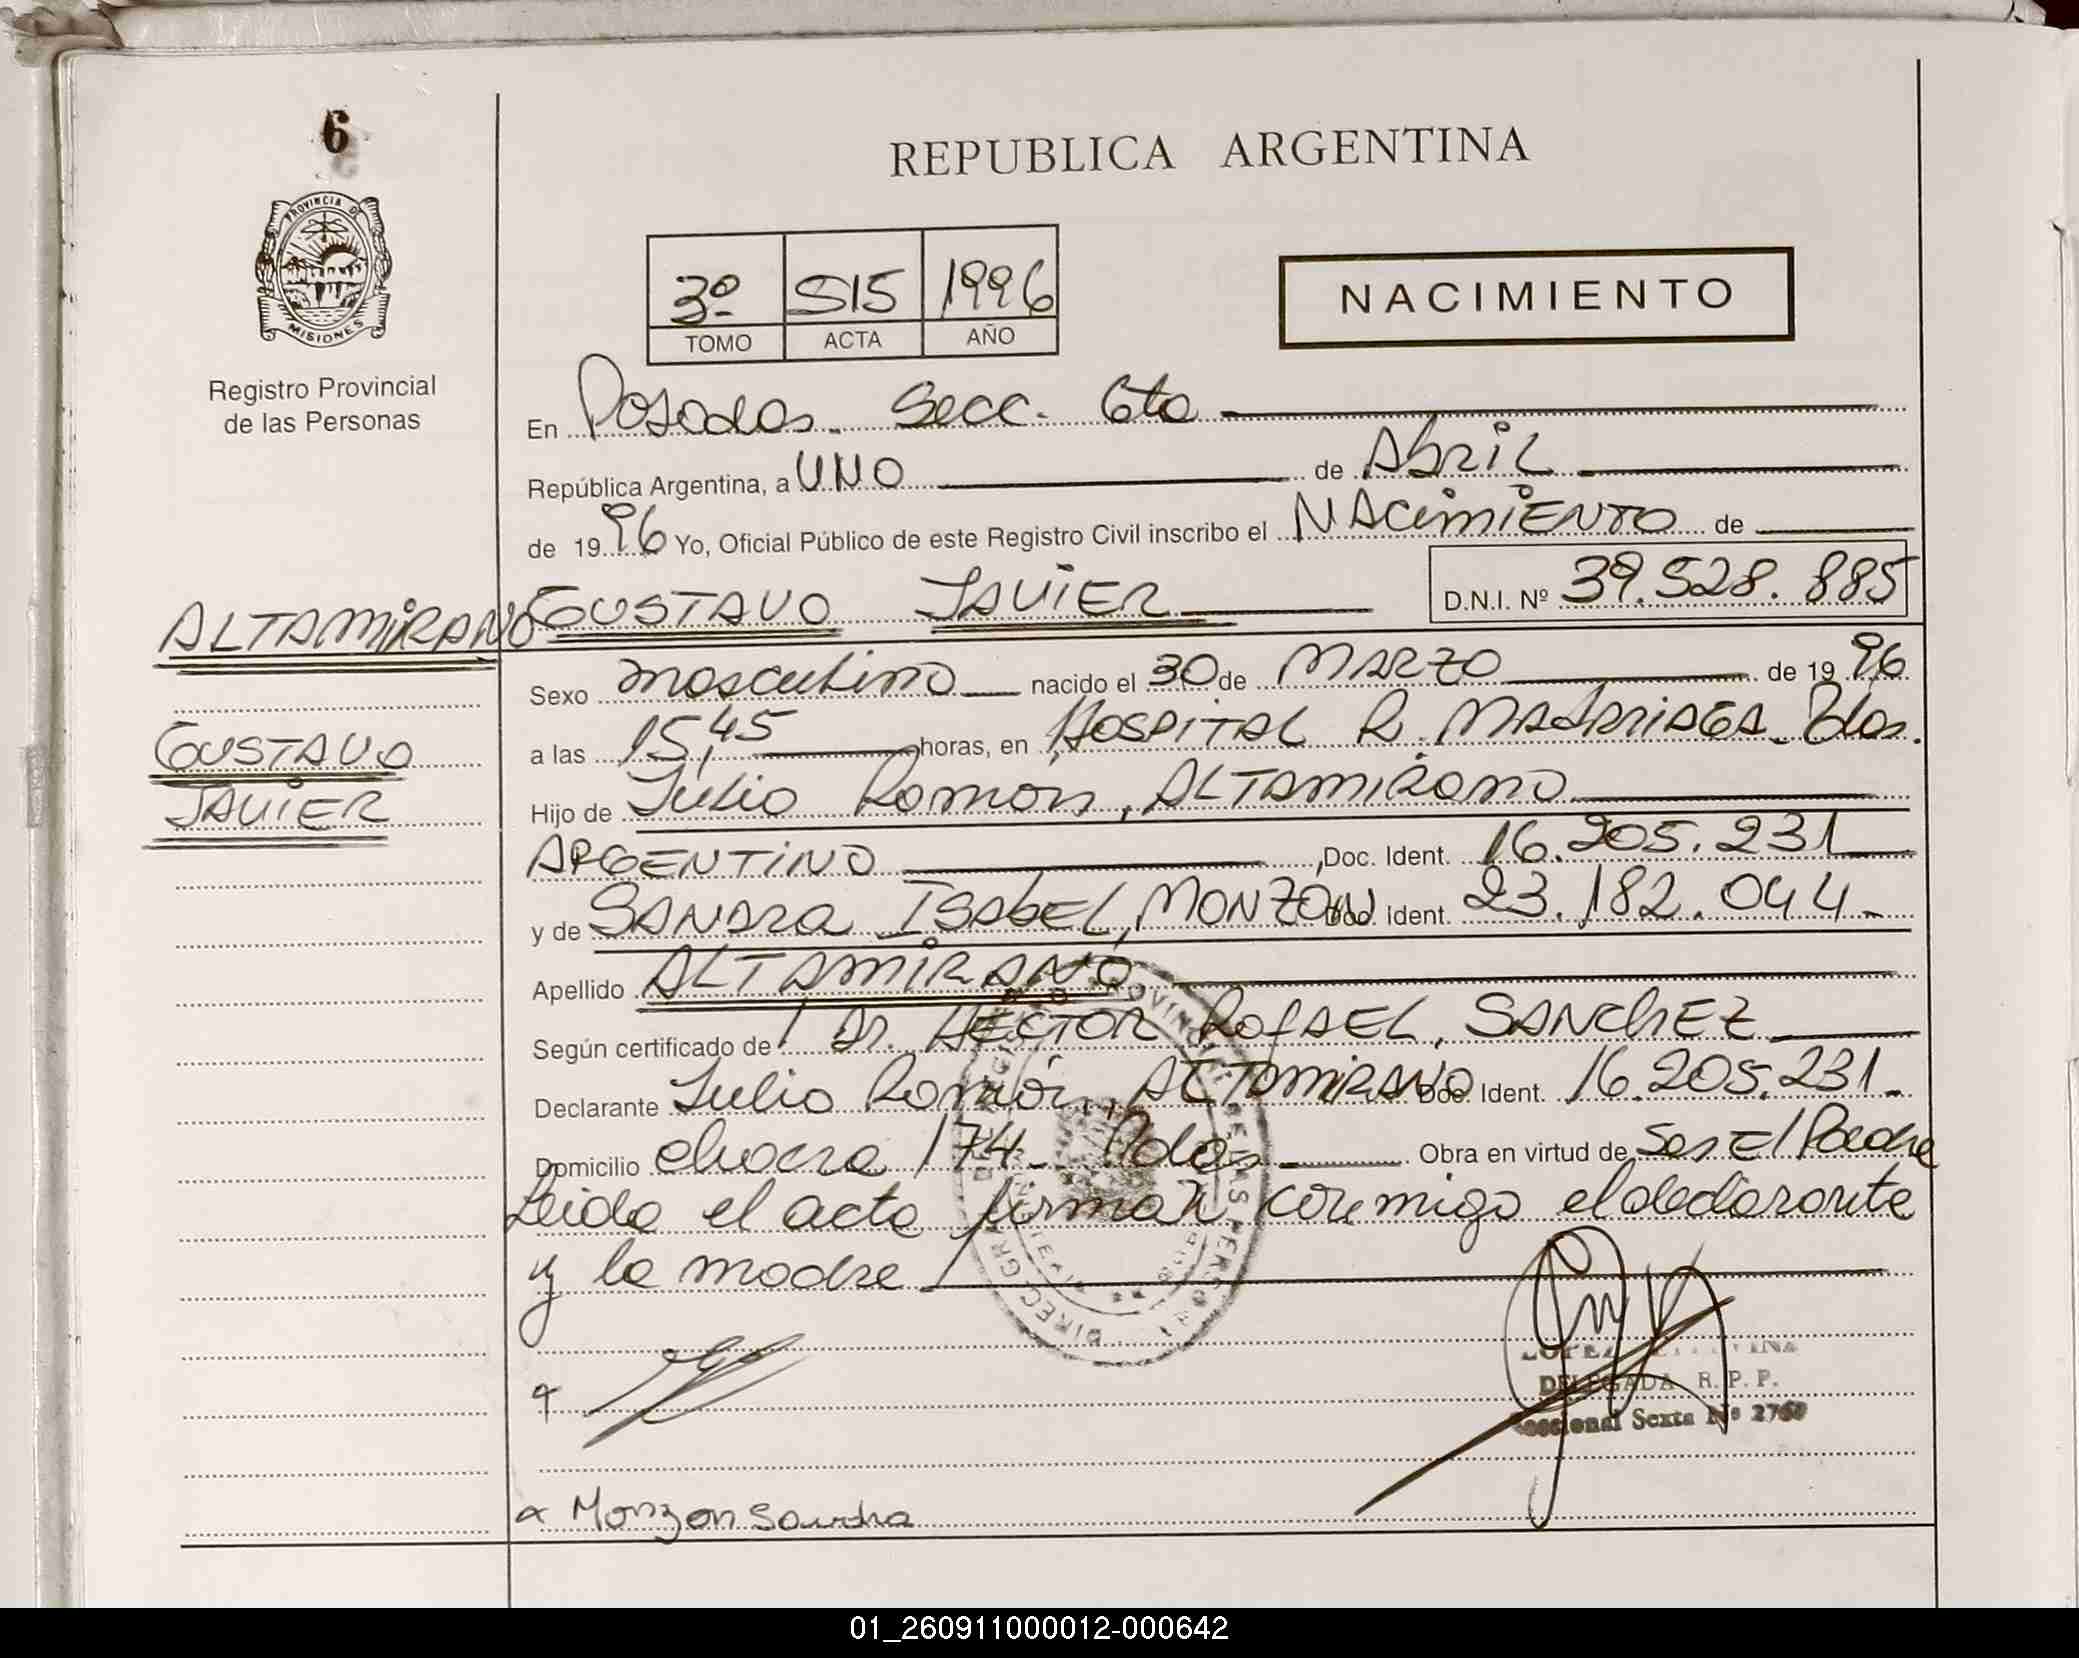 6
PROVINCIA D
MISIONES
Registro Provincial
de las Personas
REPUBLICA ARGENTINA
3º 515 1996
TOMO ACTA AÑO
NACIMIENTO
En Posadas. Secc. 6ta
República Argentina, a UNO de Abril
de 1996 Yo, Oficial Público de este Registro Civil inscribo el NACIMIENTO de
GUSTAVO JAVIER D.N.I. Nº 39.528.885
ALTAMIRANO
GUSTAVO
JAVIER
Sexo masculino nacido el 30 de MARZO de 1996
a las 15,45 horas, en HOSPITAL R. MADARIAGA. Pdas.
Hijo de Julio Ramón, ALTAMIRANO
ARGENTINO , Doc. Ident. 16.205.231
y de SANDRA ISABEL, MONZÓN Doc. Ident. 23.182.044.
Apellido ALTAMIRANO
Según certificado de Dr. HECTOR RafAEL, SANCHEZ
Declarante Julio Ramón, ALTAMIRANO Doc. Ident. 16.205.231.
Domicilio chacra 174. Pdas Obra en virtud de Ser El Padre
Leida el acta firman conmigo el declarante
y la madre
LOPEZ
DELEGADA R. P. P.
Seccional Sexta Nº 2760
Monzon Sandra
01_260911000012-000642